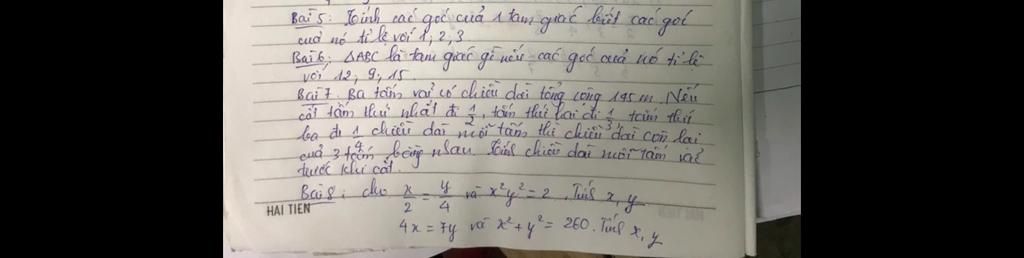 Bài 5: Tính các góc của 1 tam giác biết các góc
của nó tỉ lệ với 1, 2, 3
Bài 6: ΔABC là tam giác gì nếu các góc của nó tỉ lệ
với 12, 9, 15.
Bài 7. Ba tấm vải có chiều dài tổng cộng 145 m. Nếu
cắt tấm thứ nhất đi 1/2, tấm thứ hai đi 1/3, tấm thứ
ba đi 1/4 chiều dài mỗi tấm thì chiều dài còn lại
của 3 tấm bằng nhau. Tính chiều dài mỗi tấm vải
trước khi cắt.
Bài 8: cho x/2 = y/4 và x²y² = 2. Tính x, y
HAI TIEN
4x = 7y và x² + y² = 260. Tính x, y